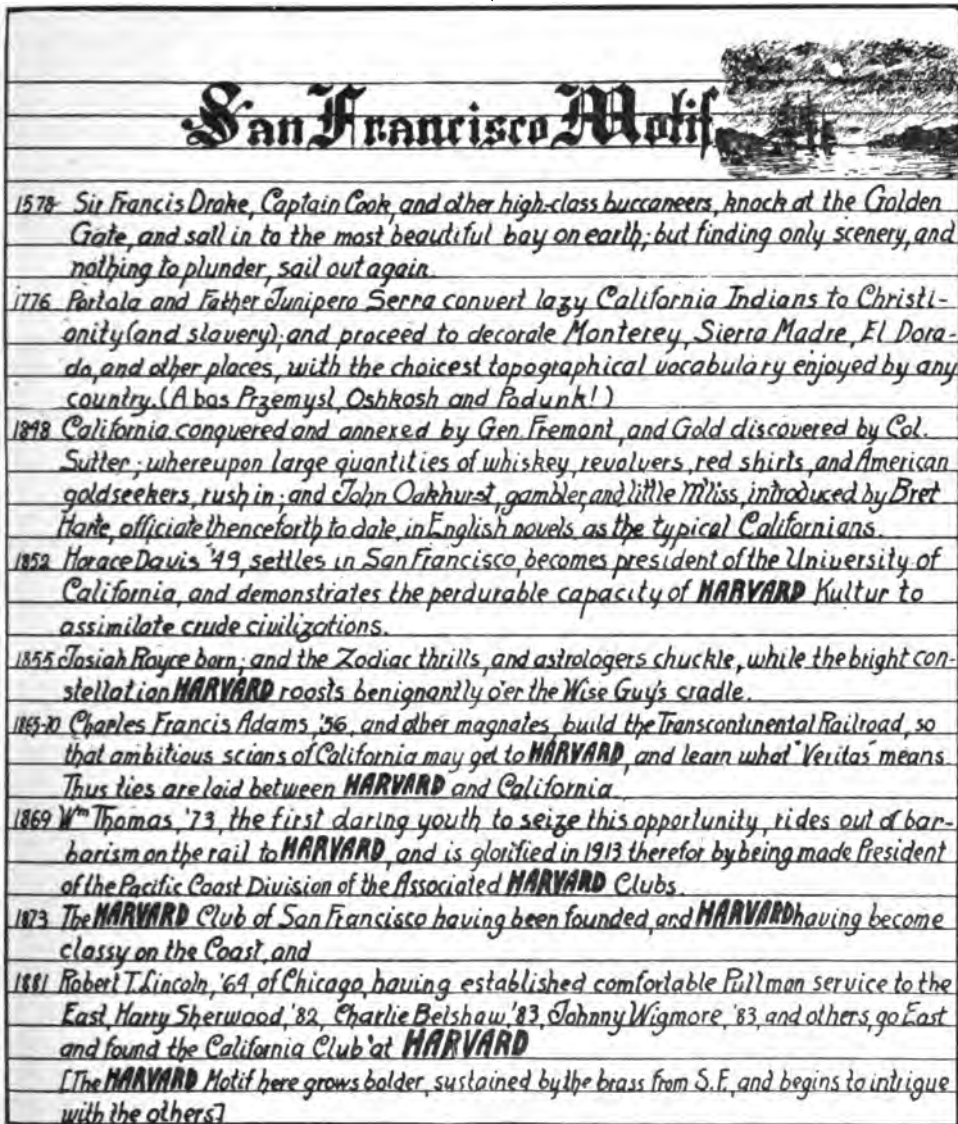 San Francisco Motif.
1578- Sir Francis Drake, Captain Cook, and other high-class buccaneers, knock at the Golden
Gate, and sail in to the most beautiful bay on earth; but finding only scenery, and
nothing to plunder, sail out again.
1776 Portola and Father Junipero Serra convert lazy California Indians to Christi-
anity (and slavery); and proceed to decorate Monterey, Sierra Madre, El Dora-
do, and other places, with the choicest topographical vocabulary enjoyed by any
country. (A bas Przemysl, Oshkosh and Podunk!)
1848 California conquered and annexed by Gen. Fremont, and Gold discovered by Col.
Sutter; whereupon large quantities of whiskey, revolvers, red shirts, and American
goldseekers, rush in; and John Oakhurst, gambler, and little M'liss, introduced by Bret
Harte, officiate thenceforth to date, in English novels as the typical Californians.
1852 Horace Davis '49, settles in San Francisco, becomes president of the University of
California, and demonstrates the perdurable capacity of HARVARD Kultur to
assimilate crude civilizations.
1855 Josiah Royce born; and the Zodiac thrills, and astrologers chuckle, while the bright con-
stellation HARVARD roosts benignantly o'er the Wise Guy's cradle.
1865-70 Charles Francis Adams, '56, and other magnates, build the Transcontinental Railroad, so
that ambitious scions of California may get to HARVARD, and learn what "Veritas" means.
Thus ties are laid between HARVARD and California.
1869 Wm Thomas, '73, the first daring youth to seize this opportunity, rides out of bar-
barism on the rail to HARVARD, and is glorified in 1913 therefor by being made President
of the Pacific Coast Division of the Associated HARVARD Clubs.
1873 The HARVARD Club of San Francisco having been founded, and HARVARD having become
classy on the Coast, and
1881 Robert T. Lincoln, '64, of Chicago, having established comfortable Pullman service to the
East, Harry Sherwood, '82, Charlie Belshaw, '83, Johnny Wigmore, '83, and others, go East
and found the California Club at HARVARD
[The HARVARD Motif here grows bolder, sustained by the brass from S.F., and begins to intrigue
with the others]